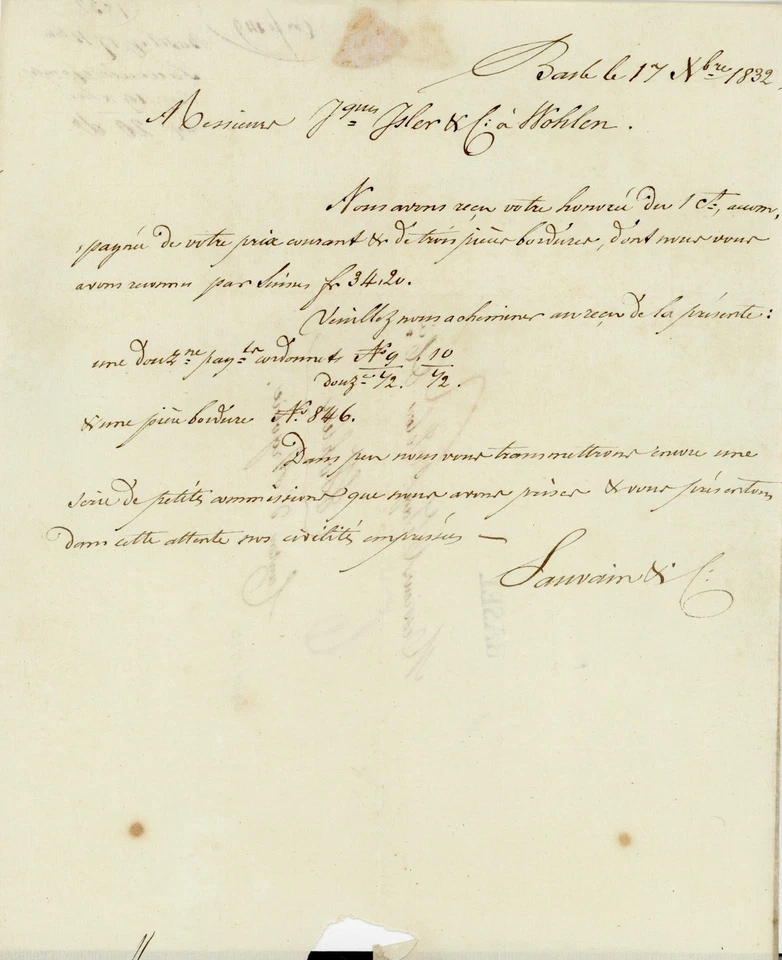 Basle le 17 Nbre 1832.
Messieurs Jques Isler & C: à Wohlen.
Nous avons reçu votre honorée du 1 ct, accom,
,pagnée de votre prix courant & de trois pièces bordures, dont nous vous
avons reconnu par Suisses fr 34,20.
Veuillez nous acheminer au reçu de la présente:
une douzne paqts cordonnets No 9 10
douz: 1/2. 1/2.
& une pièce bordure No 846.
Dans peu nous vous transmettrons encore une
série de petites commissions que nous avons prises & vous présentons
dans cette attente nos civilités empressées —
Sauvain & C:
BASEL